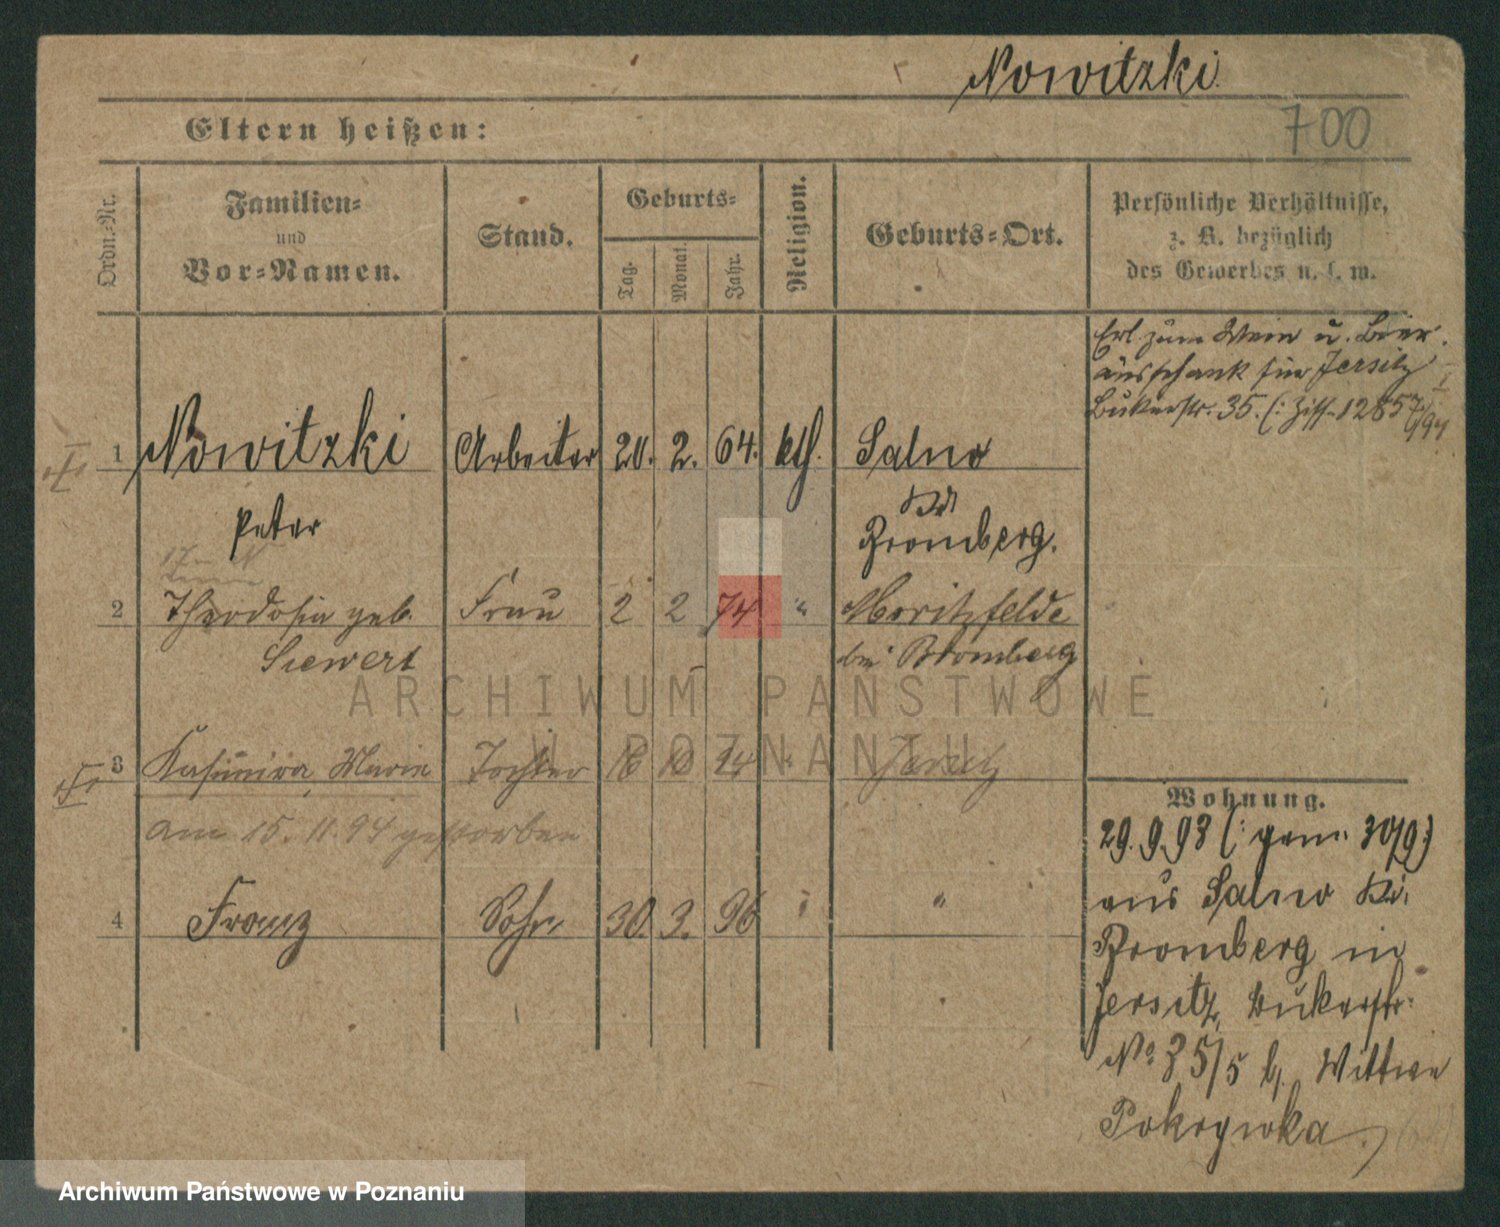 Nowitzki.
700
Eltern heißen:
Ordn.-Nr.
Familien-
und
Vor-Namen.
Stand.
Geburts-
Tag.
Monat.
Jahr.
Religion.
Geburts-Ort.
Persönliche Verhältnisse,
z. B. bezüglich
des Gewerbes u. s. w.
Erl. zum Wein u. Bier-
ausschank für Jersitz
Bukerstr. 35.
1 Nowitzki Arbeiter 20. 2. 64. kth. Salno
Peter
Kr.
Bromberg.
2 Theodosia geb. Frau 2 2 74 " Moritzfelde
Siewert bei Bromberg
ARCHIWUM PAŃSTWOWE
W POZNANIU
3 Kasimira, Marie Tochter " Jersitz
am 15. 11. 94 gestorben
4 Franz Sohn 30. 3. 96 " "
Wohnung.
29. 9. 93 (: gem. 30/9:)
aus Salno Kr.
Bromberg in
Jersitz, Bukerstr.
No. 35/5 b. Wittwe
Pokrywka
Archiwum Państwowe w Poznaniu